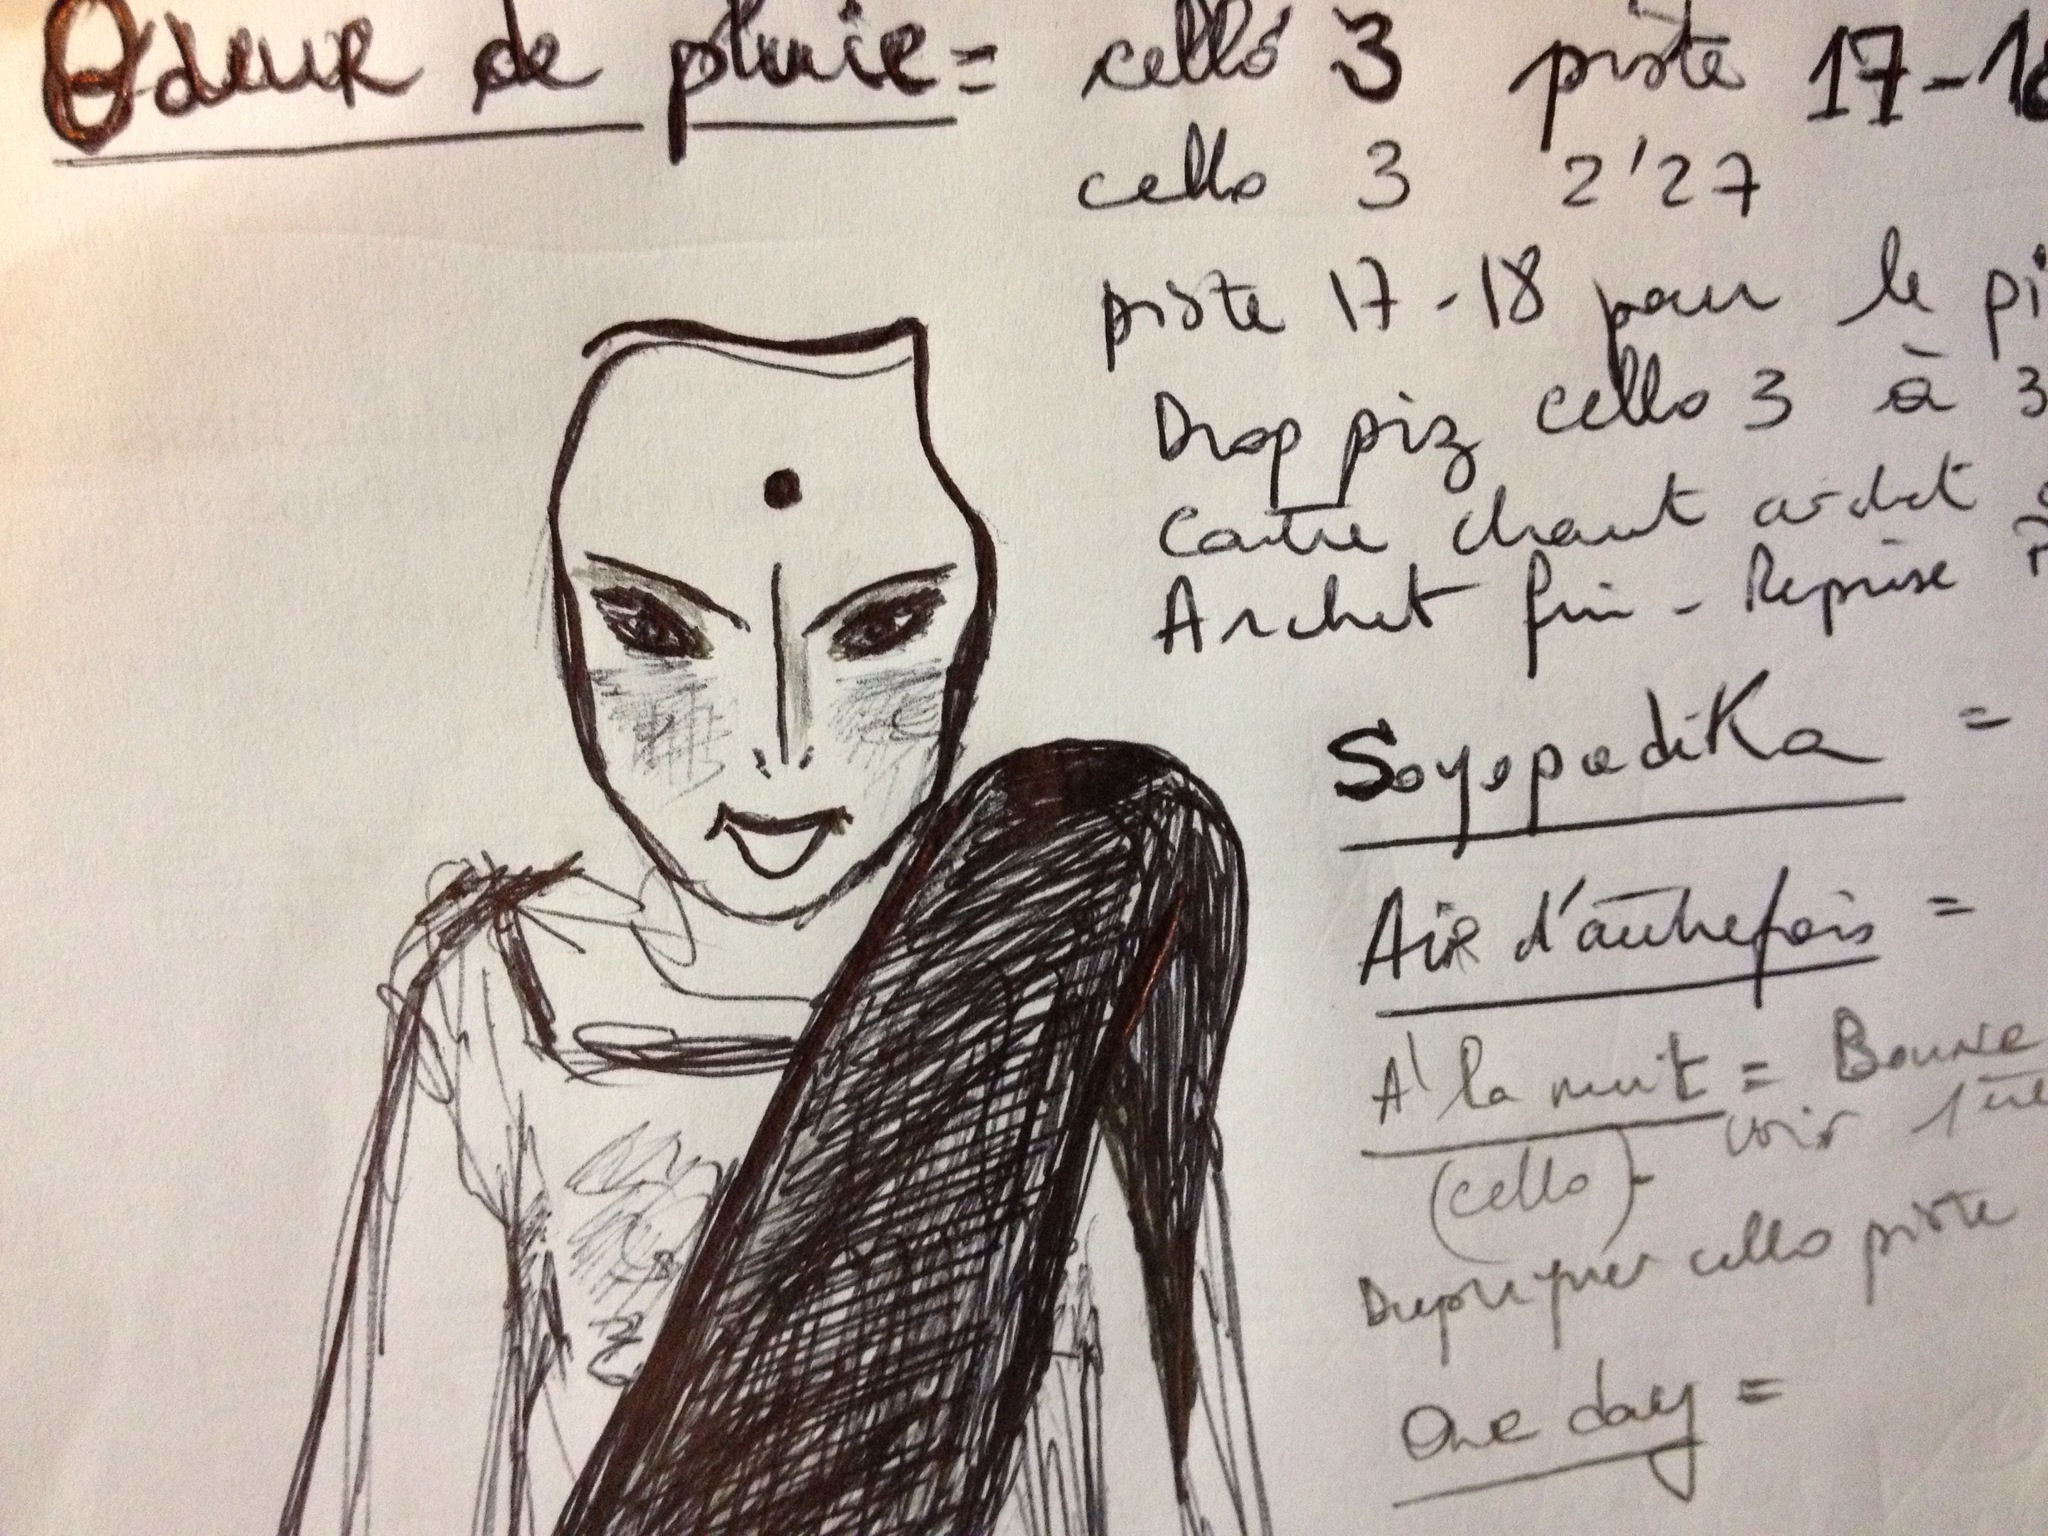 Odeur de pluie = cello 3 piste 17-18
cello 3 2'27
piste 17-18 pour le pi
Drop piz cello 3 à 3
Contre chant archet
Archet fin - Reprise
Soyopadika =
Air d'autrefois =
A' la nuit = Bourre
(cello) - voir 1ère
Dupliquer cello piste
One day =